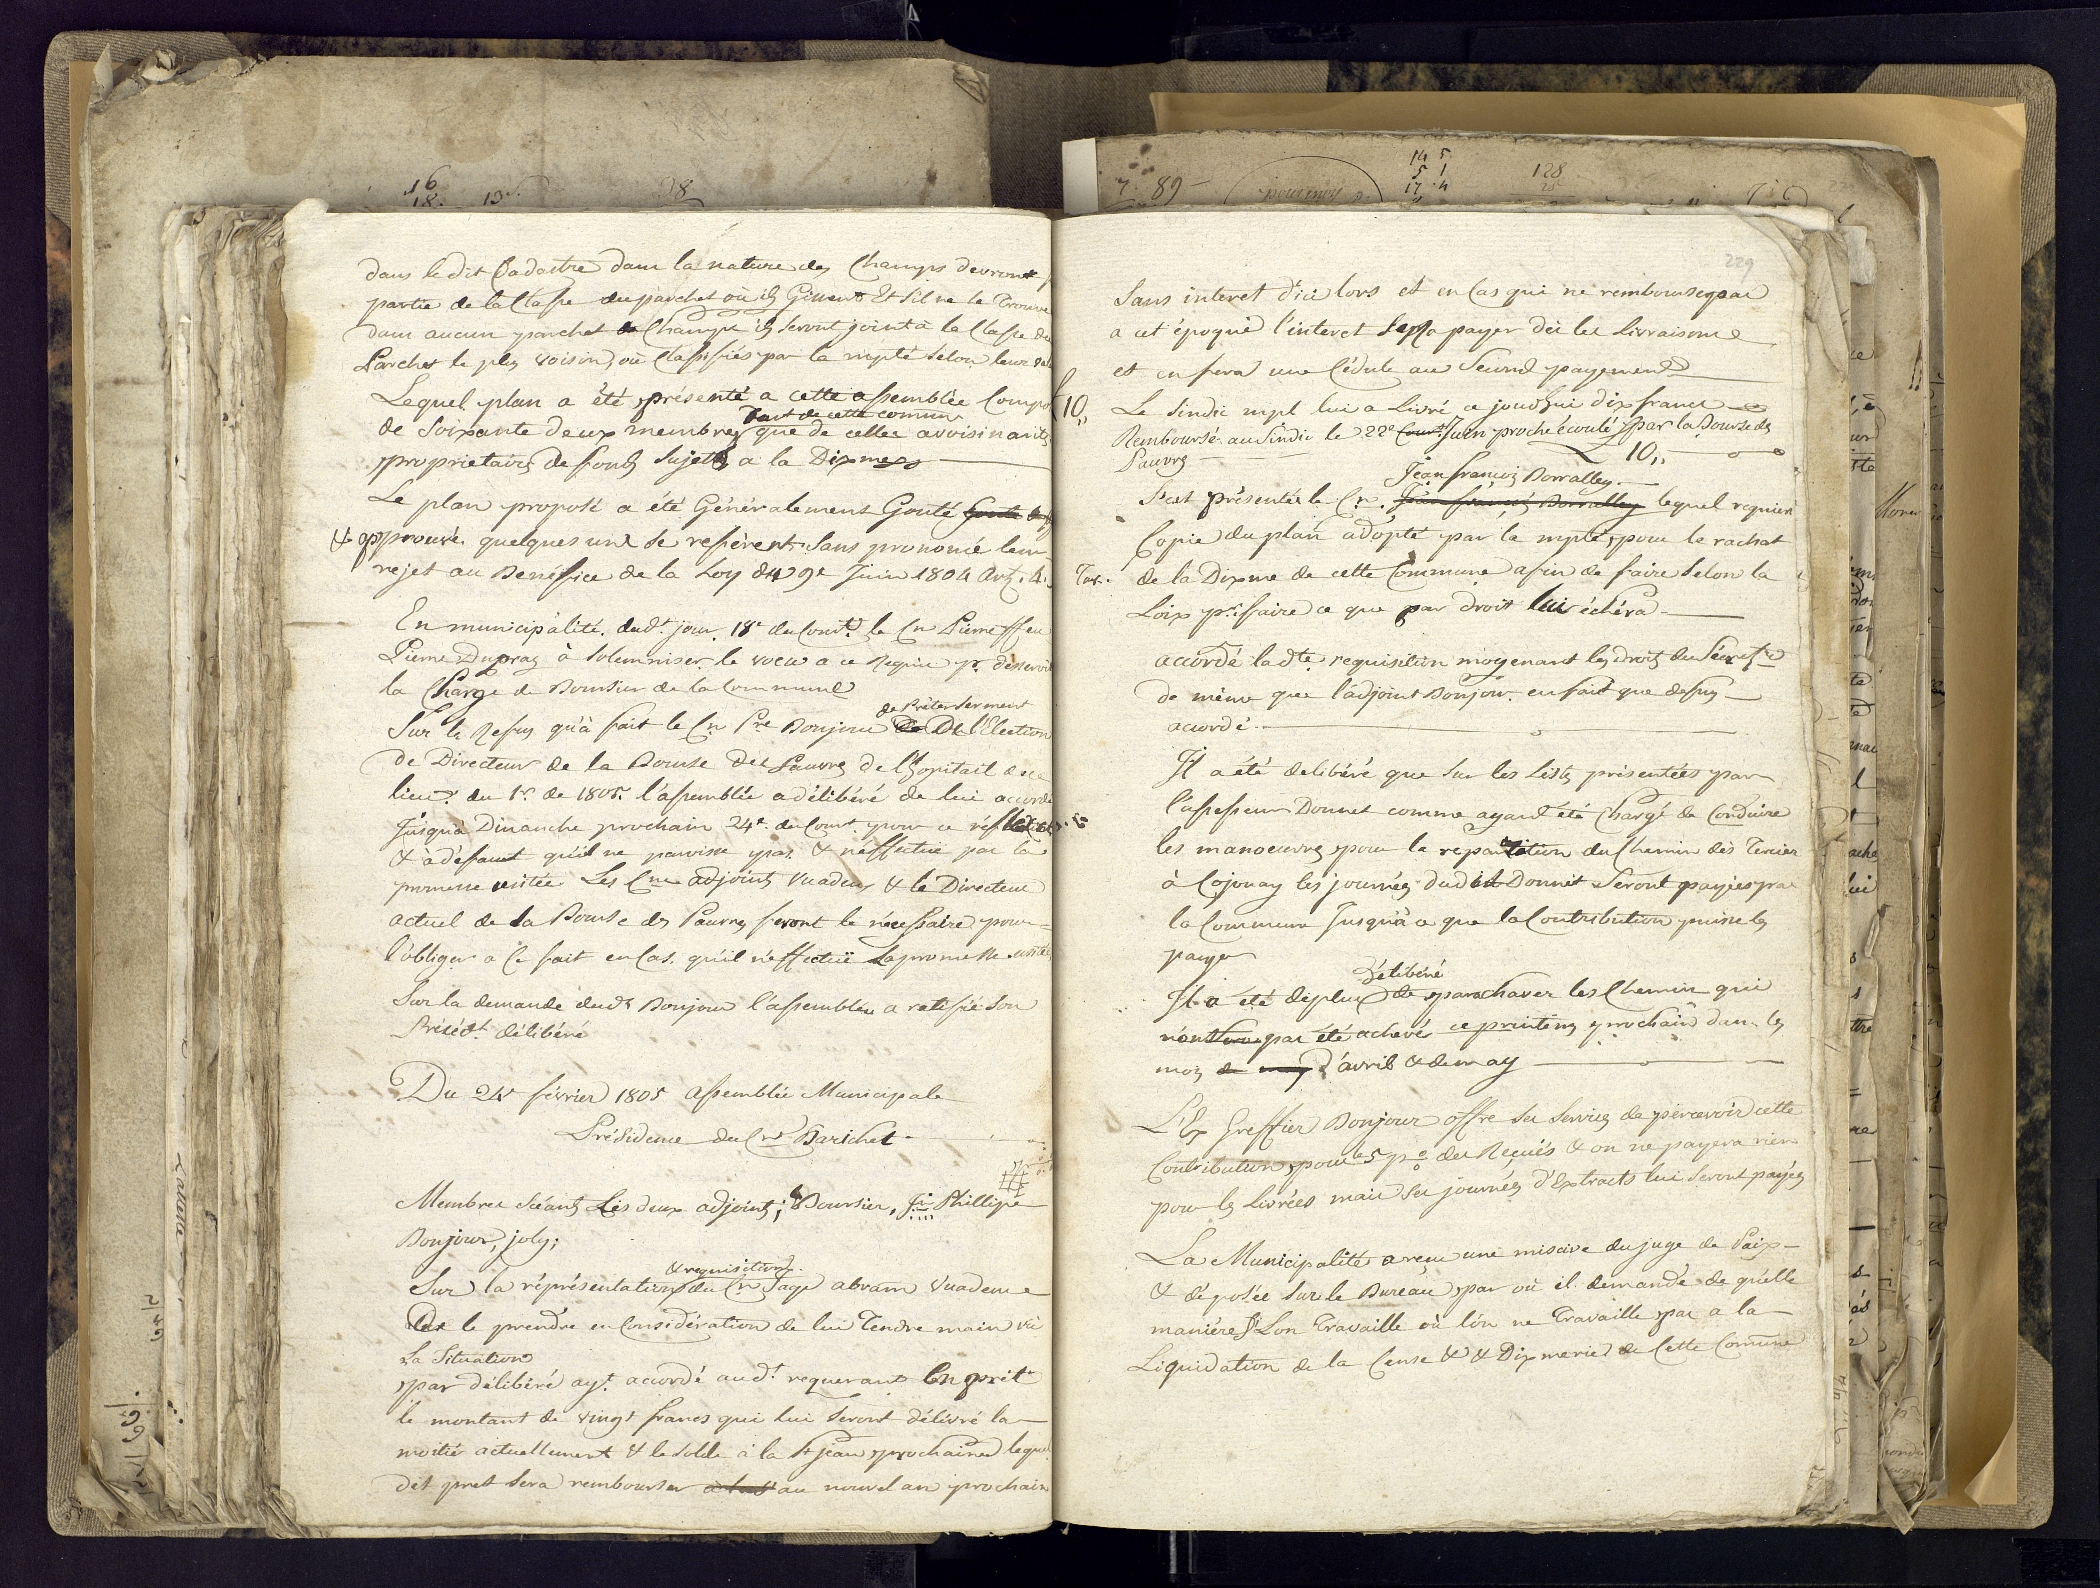 dans le dit Cadastre dans la nature des Champs devront
partie de la Classe du parchet où ils Gissent Et Sil ne le Trouve
dans aucun parchet de Champs ils Seront joint à la Classe du
Parchet le plus voisin, où Classifiés par la mplté Selon leur
Lequel plan a été présenté a cette assemblée Compo
de Soixante deux membres tant de cette commune que de celles avoisinantes
proprietaires de fonds Sujets a la Dixmes
Le plan proposé a été Généralement Gouté
& approuvé quelques uns se referent Sans prononcé leur
rejet au Benéfice de la Loy du 9e Juin 1804 Art. 4.
En municipalité dudt. jour 18e du Court. le Cn Pierre ffeu
Pierre Dupraz à Solemniser le voeu a ce Requis pr. desservir
la Charge de Boursier de la Commune
Sur le Refus qu'à fait le Cn Pre Bonjour de Prêter Serment De l'Election
de Directeur de la Bourse des Pauvres de l'hopitail de ce
lieu du 1r. de 1805. l'assemblée a délibéré de lui accordé
Jusqu'à Dimanche prochain 24e. du Court. pour ce
& à défaut qu'il ne paroisse pas & n'effectue pas la
promesse usitée Les Cns adjoints Vuadens & le Directeur
actuel de la Bourse des Pauvres feront le nécessaire pour
l'obliger a Ce fait en Cas qu'il n'effectuë la promesse usitée
Sur la demande dudt Bonjour l'assemblée a ratifié Son
Précédt. délibéré
Du 24e février 1805 Assemblée Municipale
Présidence du Cn Barichet
Membres Séants Les deux adjoints; Boursier, Phillipe
Bonjour, joly;
Sur la réprésentation & requisition du Cn Jaqe abram Vuadens
de le prendre en Considération de lui Tendre main vû
La Situation
par délibéré ayt. acordé audt. requerant En pret
le montant de vingt francs qui lui Seront délivré la
moitié actuellement & le Solde à la St jean prochaine lequel
dit pret Sera rembourser au nouvel an prochain
229
Sans interet d'ici lors et en Cas qui ne rembourse pas
a cet époque l'interet Sera payer dès les Livraisons
et en fera une Cédule au Second payement
10,, Le Sindic mpl lui a Livré ce jourdhui dix francs
Remboursé au Sindic le 22e Juin proche écoulé par la Bourse des
Pauvres L 10,,
S'est présentée le Cn. Jean françois Borralley lequel requiert
Copie du plan adopté par la mplté pour le rachat
de la Dixme de cette Commune afin de faire Selon la
Loix pr. faire ce que par droit lui échéra
accordé la dte requisition moyenant les droits du Sécretre
de même que l'adjoint Bonjour en fait que dessus
accordé
Il a été deliberé que Sur les Listes présentées par
l'assesseur Donnet comme ayant été Chargé de Conduire
les manoeuvres pour la reparation du Chemin dès Tercier
à Cojonay les journées dudit Donnet Seront payées par
la Commune Jusqu'à ce que la Contribution puisse les
payer
Il a été déplus délibéré de parachaver les Chemin qui
n'ont pas été achevé ce printems prochain dans les
mois d'avril & de may
L'Ex Greffier Bonjour offre Ses Services de percevoir cette
Contribution pour le 5 po des Reçuës & on ne payera rien
pour les Livrées mais Ses journées d'Extraits lui Seront payées
La Municipalité a reçu une missive du juge de Paix
& déposée Sur le Bureau par où il demande de qu'elle
manière Si Lon Travaille où lon ne Travaille pas a la
Liquidation de la Cense & Dixmerie de Cette Comune